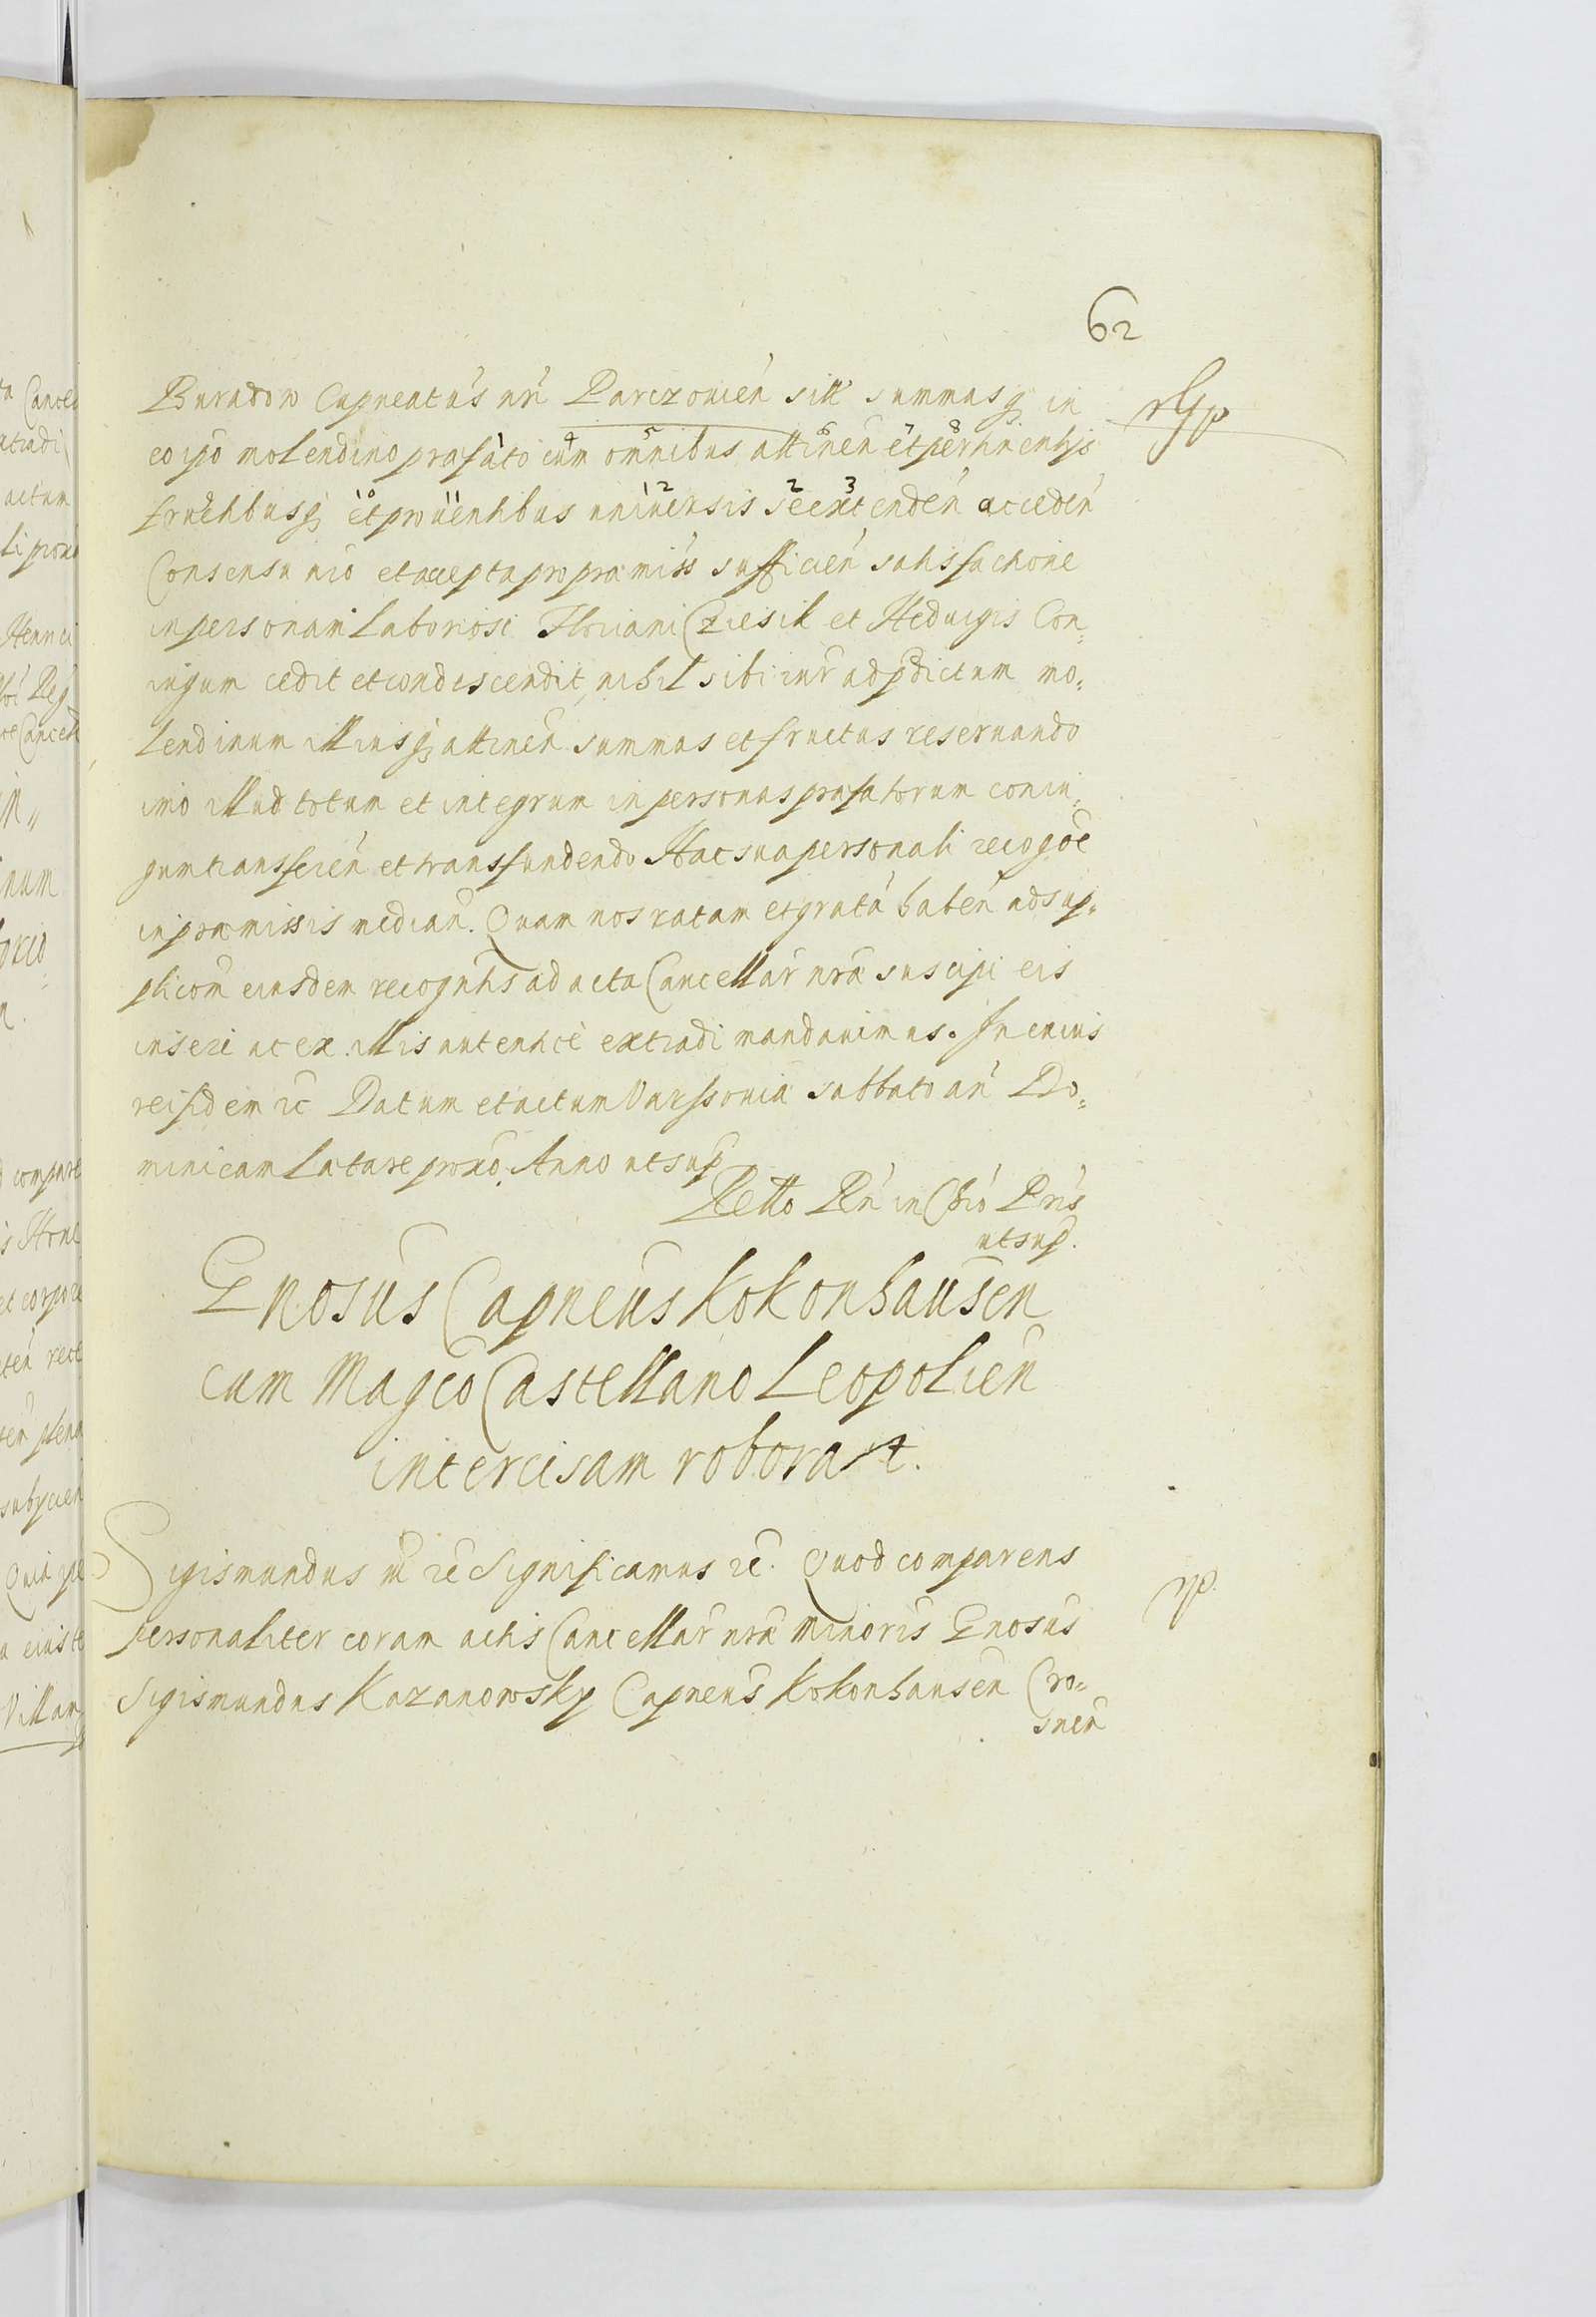 62
Buradow Capneatus nri Parczouień sitt summasq in
eo ipō molendino præfato cum omnibus attinen et pertinentijs
4 5 6 7 8
fructibusq et prouentibus uniuersis se extenden acceden
10 11 12 2 3
Consensu nrō et accepta pro præmiss sufficień satisfactione
in personam Laboriosi Floriani Cziesik et Heduigis Con=
iugum cedit et condescendit, nihil sibi iur ad pdictum mo=
lendinum illiusq attinen summas et fructus reseruando
imō illud totum et integrum in personas præfatorum coniu=
gum transferen et transfundendo Hac sua personali recogōē
in præmissis median. Quam nos ratam et gratā haben ad sup=
plicōm eiusdem recogntis ad acta Cancellar nræ suscipi eis
inseri ac ex illis autenticè extradi mandauimus. In cuius
rei fidem rc Datum et actum Varssouiæ sabbato an Do=
minicam Lætare proxō Anno ut sup
Retto Rn in Chrō Pris
ut sup.
Gnosus Capneus Kokonhausen
cum Magco Castellano Leopolien
intercisam roborat.
Sigismundus III rc Significamus rc. Quod comparens
personaliter coram actis Cancellar nræ Minoris Gnosus
Sigismundus Kazanowsky Capneus Kokonhausen Cro=
snen